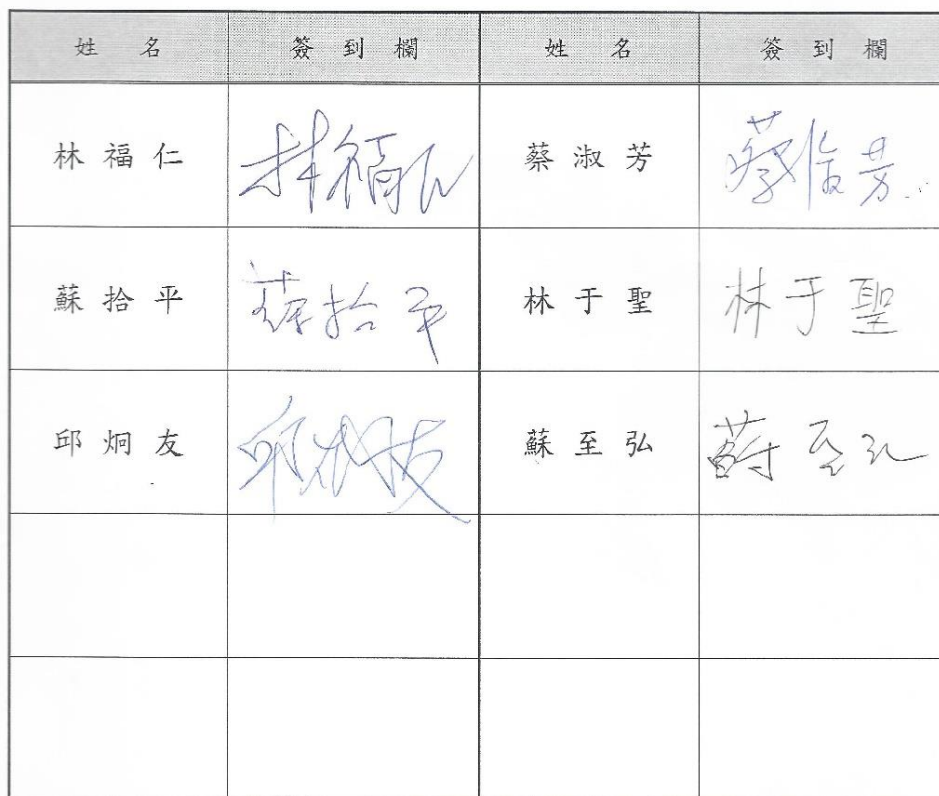 姓 名 簽 到 欄 姓 名 簽 到 欄
林 福 仁 林福仁 蔡 淑 芳 蔡淑芳
蘇 拾 平 蘇拾平 林 于 聖 林于聖
邱 炯 友 邱炯友 蘇 至 弘 蘇至弘